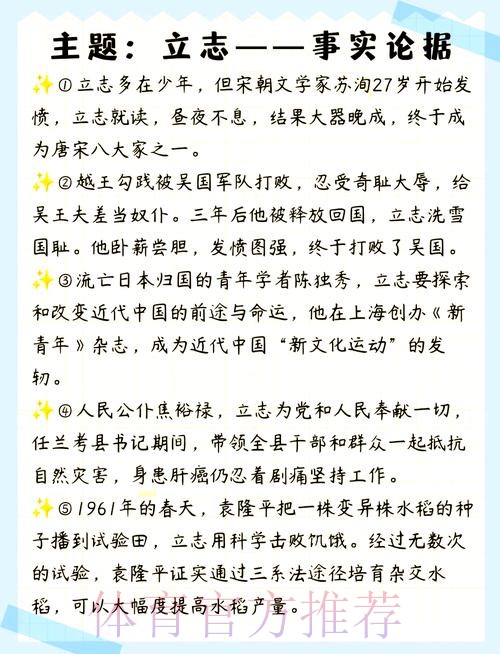 主题：立志——事实论据
✨①立志多在少年，但宋朝文学家苏洵27岁开始发
愤，立志就读，昼夜不息，结果大器晚成，终于成
为唐宋八大家之一。
✨②越王勾践被吴国军队打败，忍受奇耻大辱，给
吴王夫差当奴仆。三年后他被释放回国，立志洗雪
国耻。他卧薪尝胆，发愤图强，终于打败了吴国。
✨③流亡日本归国的青年学者陈独秀，立志要探索
和改变近代中国的前途与命运，他在上海创办《新
青年》杂志，成为近代中国“新文化运动”的发
轫。
✨④人民公仆焦裕禄，立志为党和人民奉献一切，
任兰考县书记期间，带领全县干部和群众一起抵抗
自然灾害，身患肝癌仍忍着剧痛坚持工作。
✨⑤1961年的春天，袁隆平把一株变异株水稻的种
子播到试验田，立志用科学击败饥饿。经过无数次
的试验，袁隆平证实通过三系法途径培育杂交水
稻，可以大幅度提高水稻产量。
体育官方推荐